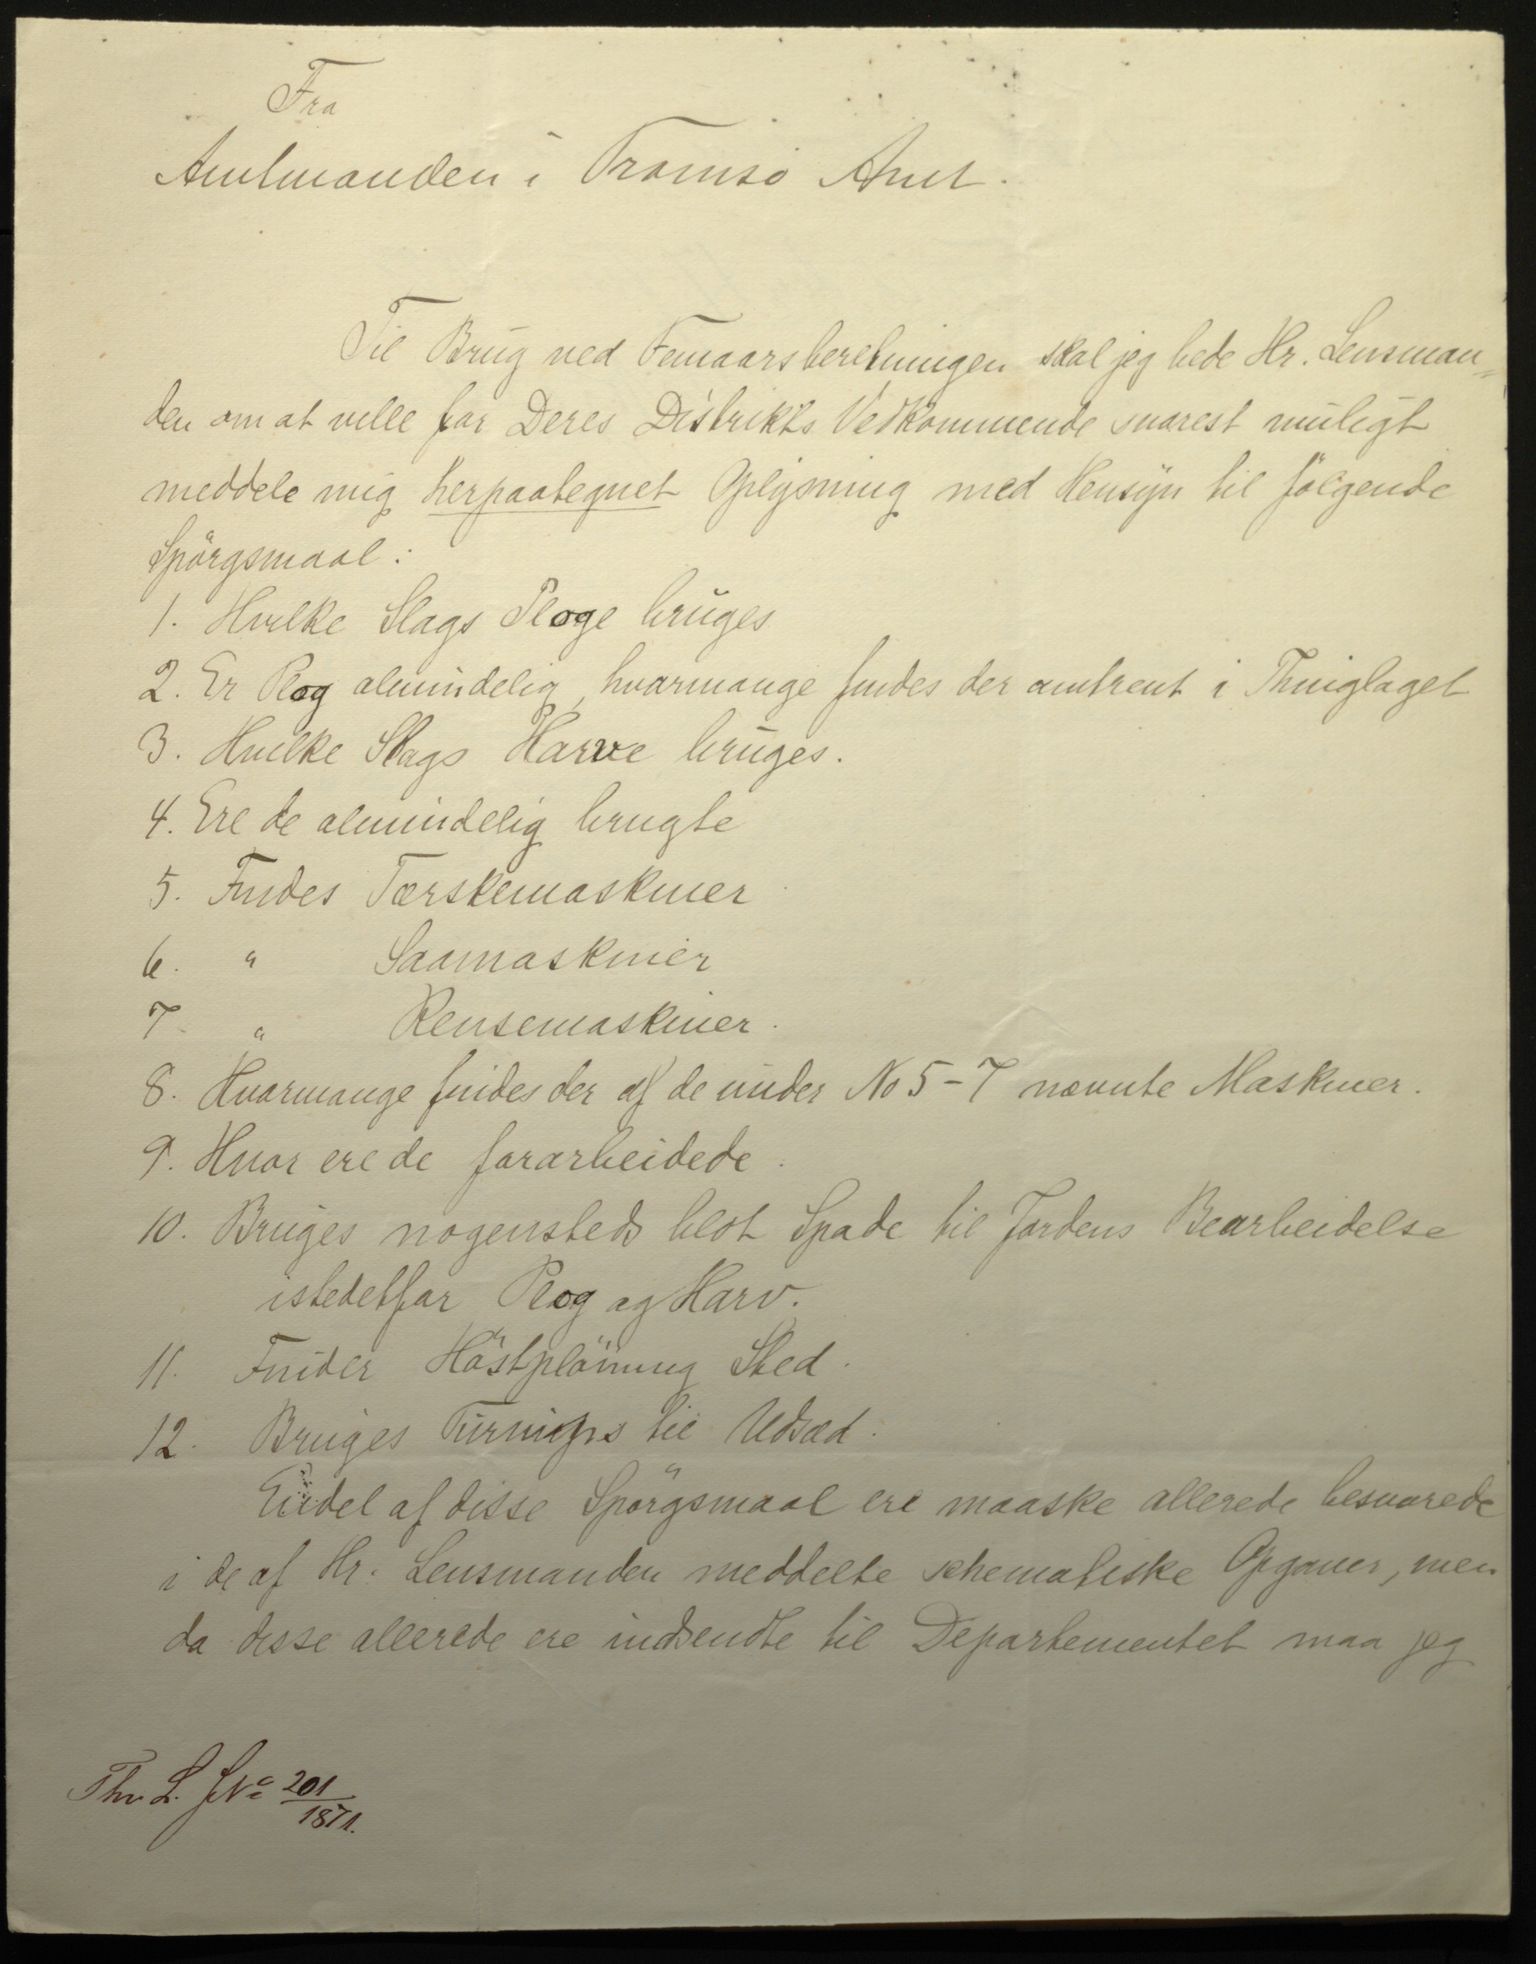 Fra
Amtmanden i Tromsö Amt.
Til Brug ved Femaarsberetningen skal jeg bede Hr. Lensman=
den om at ville for Deres Distrikts Vedkommende snarest muligt
meddele mig herpaategnet Oplysning med Hensyn til følgende
Spörgsmaal:
1. Hvilke Slags Ploge bruges
2. Er Plog almindelig, hvormange findes der omtrent i Thinglaget
3. Hvilke Slags Harve bruges.
4. Ere de almindelig brugte
5. Findes Tærskemaskiner
6. " Saamaskiner
7 " Rensemaskiner.
8. Hvormange findes der af de under No 5-7 nævnte Maskiner.
9. Hvor ere de forarbeidede.
10. Bruges nogensteds blot Spade til Jordens Bearbeidelse
istedetfor Plog og Harv.
11. Finder Höstplöining Sted.
12. Bruges Turnips til Udsæd.
Endel af disse Spörgsmaal ere maaske allerede besvarede
i de af Hr. Lensmanden meddelte schematiske Opgaver, men
da disse allerede ere indsendte til Departementet maa jeg
Thr L. JNo 201/1871.